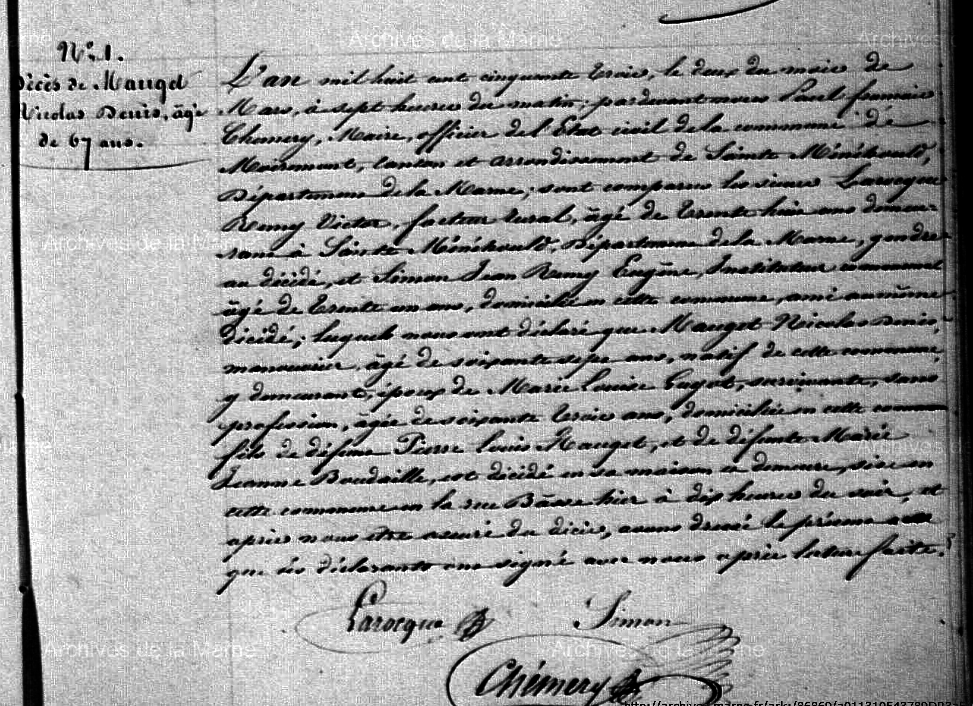 N° 1.
Décès de Mauget
Nicolas Denis, âgé
de 67 ans.
L'an mil huit cent cinquante trois, le deux du mois de
Mars, à sept heures du matin; pardevant nous Paul
Chemery, Maire, officier de l'État civil de la commune de
Moiremont, canton et arrondissement de Sainte Ménéhould,
Département de la Marne; sont comparus les sieurs Larocque
Remy Victor, facteur rural, âgé de trente huit ans demeu-
rant à Sainte Ménéhould, Département de la Marne, gendre
au décédé, et Simon Jean Remy Eugène, Instituteur communal
âgé de trente un ans, domicilié en cette commune, ami au même
décédé; lesquels nous ont déclaré que Mauget Nicolas Denis,
manouvrier, âgé de soixante sept ans, natif de cette commune,
y demeurant, époux de Marie Louise Guyot, survivante, sans
profession, âgée de soixante trois ans, domiciliée en cette commune
fils de défunt Pierre Louis Mauget, et de défunte Marie
Jeanne Baudaille, est décédé en sa maison et demeure, sise en
cette commune en la rue Basse hier à dix heures du soir, et
après nous être assuré du décès, avons dressé le présent acte
que les déclarants ont signé avec nous après lecture faite.
Larocque
Simon
Chémery
Archives de la Marne
Archives de la Marne
Archives de la Marne
Archives de la Marne